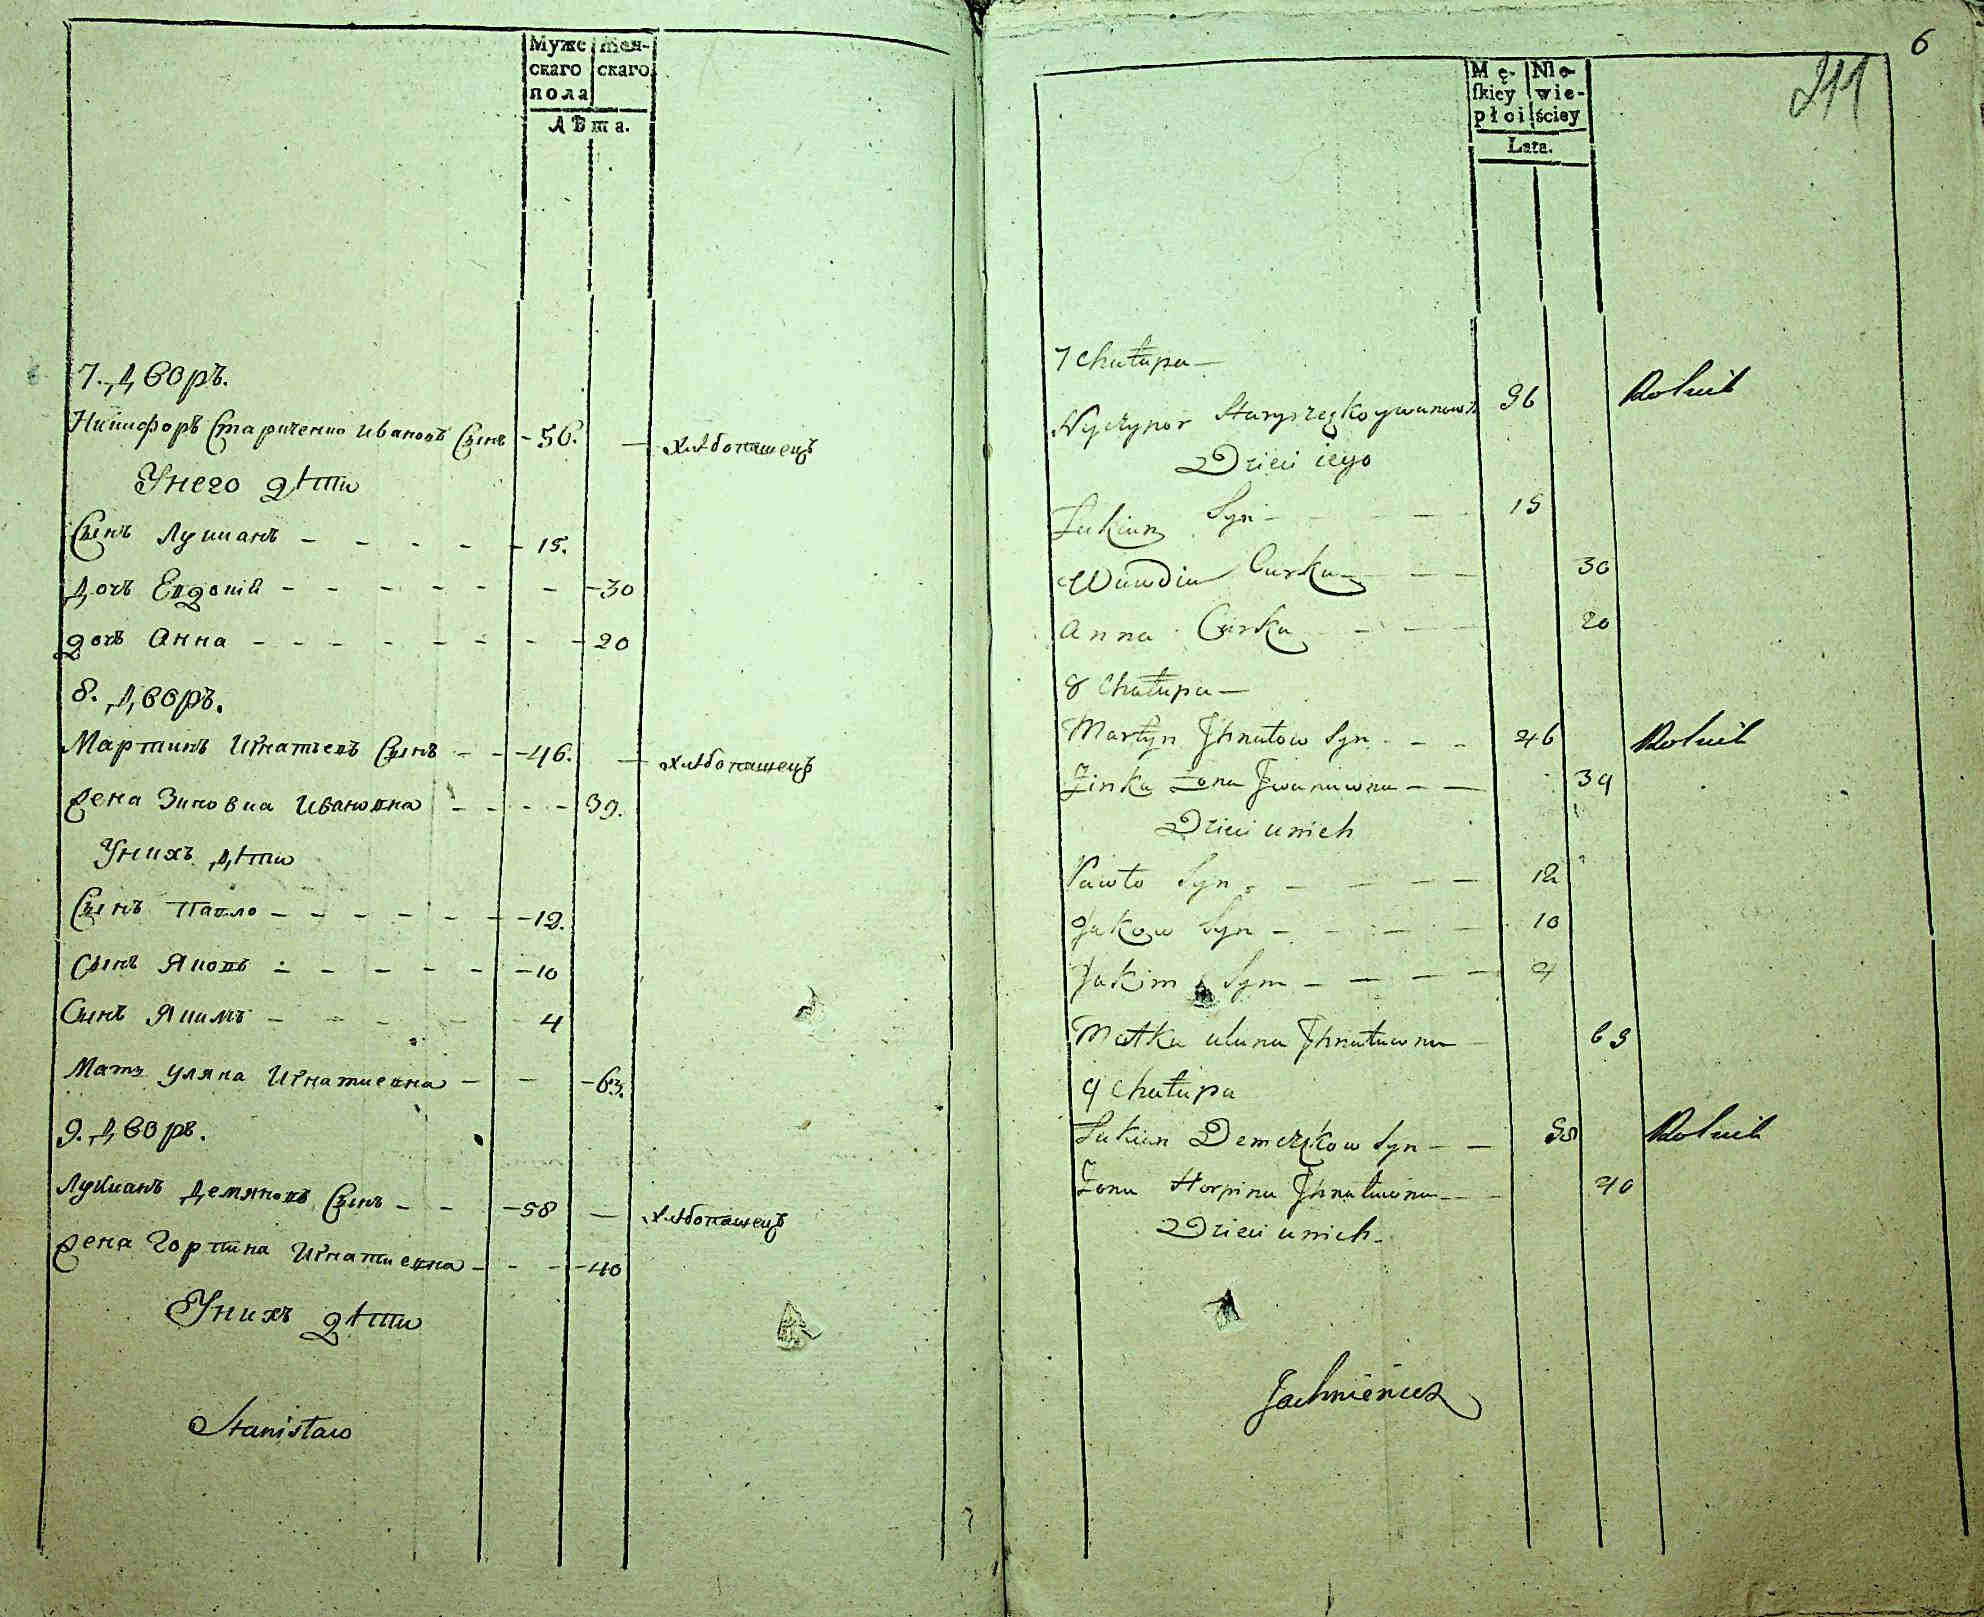 Муже
скаго
пола
Жен-
скаго
Лѣта.
7. Дворъ.
Никифоръ Стариченко Ивановъ Сынъ - 56. — хлѣбопашецъ
У него дѣти
Сынъ Лукианъ - - - - - 15.
Дочь Евдокій - - - - - - 30
дочь Анна - - - - - - - 20
8. Дворъ.
Мартинъ Игнатьевъ Сынъ - - 46. — хлѣбопашецъ
Жена Зиновиа Ивановна - - - - 39.
У нихъ дѣти
Сынъ Павло - - - - - - 12.
Сынъ Яковъ - - - - - - 10
Сынъ Якимъ - - - - - 4
Мать Уляна Игнатиевна - - - 63.
9. Дворъ.
Лукианъ Демяновъ Сынъ - - - 58 — хлѣбопашецъ
Жена Горпина Игнатиевна - - - 40
У нихъ дѣти
Stanisław
6
211
Mę-
ſkiey
płci
Nie-
wie-
ściey
Lata.
7 Chałupa —
Nyczypor Staryszęko ywanow 56 Rolnik
Dzieci iego
Łukian Syn - - - - 15
Wuwdia Curka - - - 30
Anna Curka - - - 20
8 Chałupa —
Martyn Jhnatow Syn - - - 46 Rolnik
Zinka Żona Jwanuwna - - 39
Dzieci u nich
Pawło Syn - - - - - 12
Jakow Syn - - - - 10
Jakim Syn - - - - 4
Matka Ulana Jhnatuwna - 63
9 Chałupa
Łukian Demczkow Syn - - 58 Rolnik
Żona Horpina Jhnatuwna - - 40
Dzieci u nich -
Jachniewicz